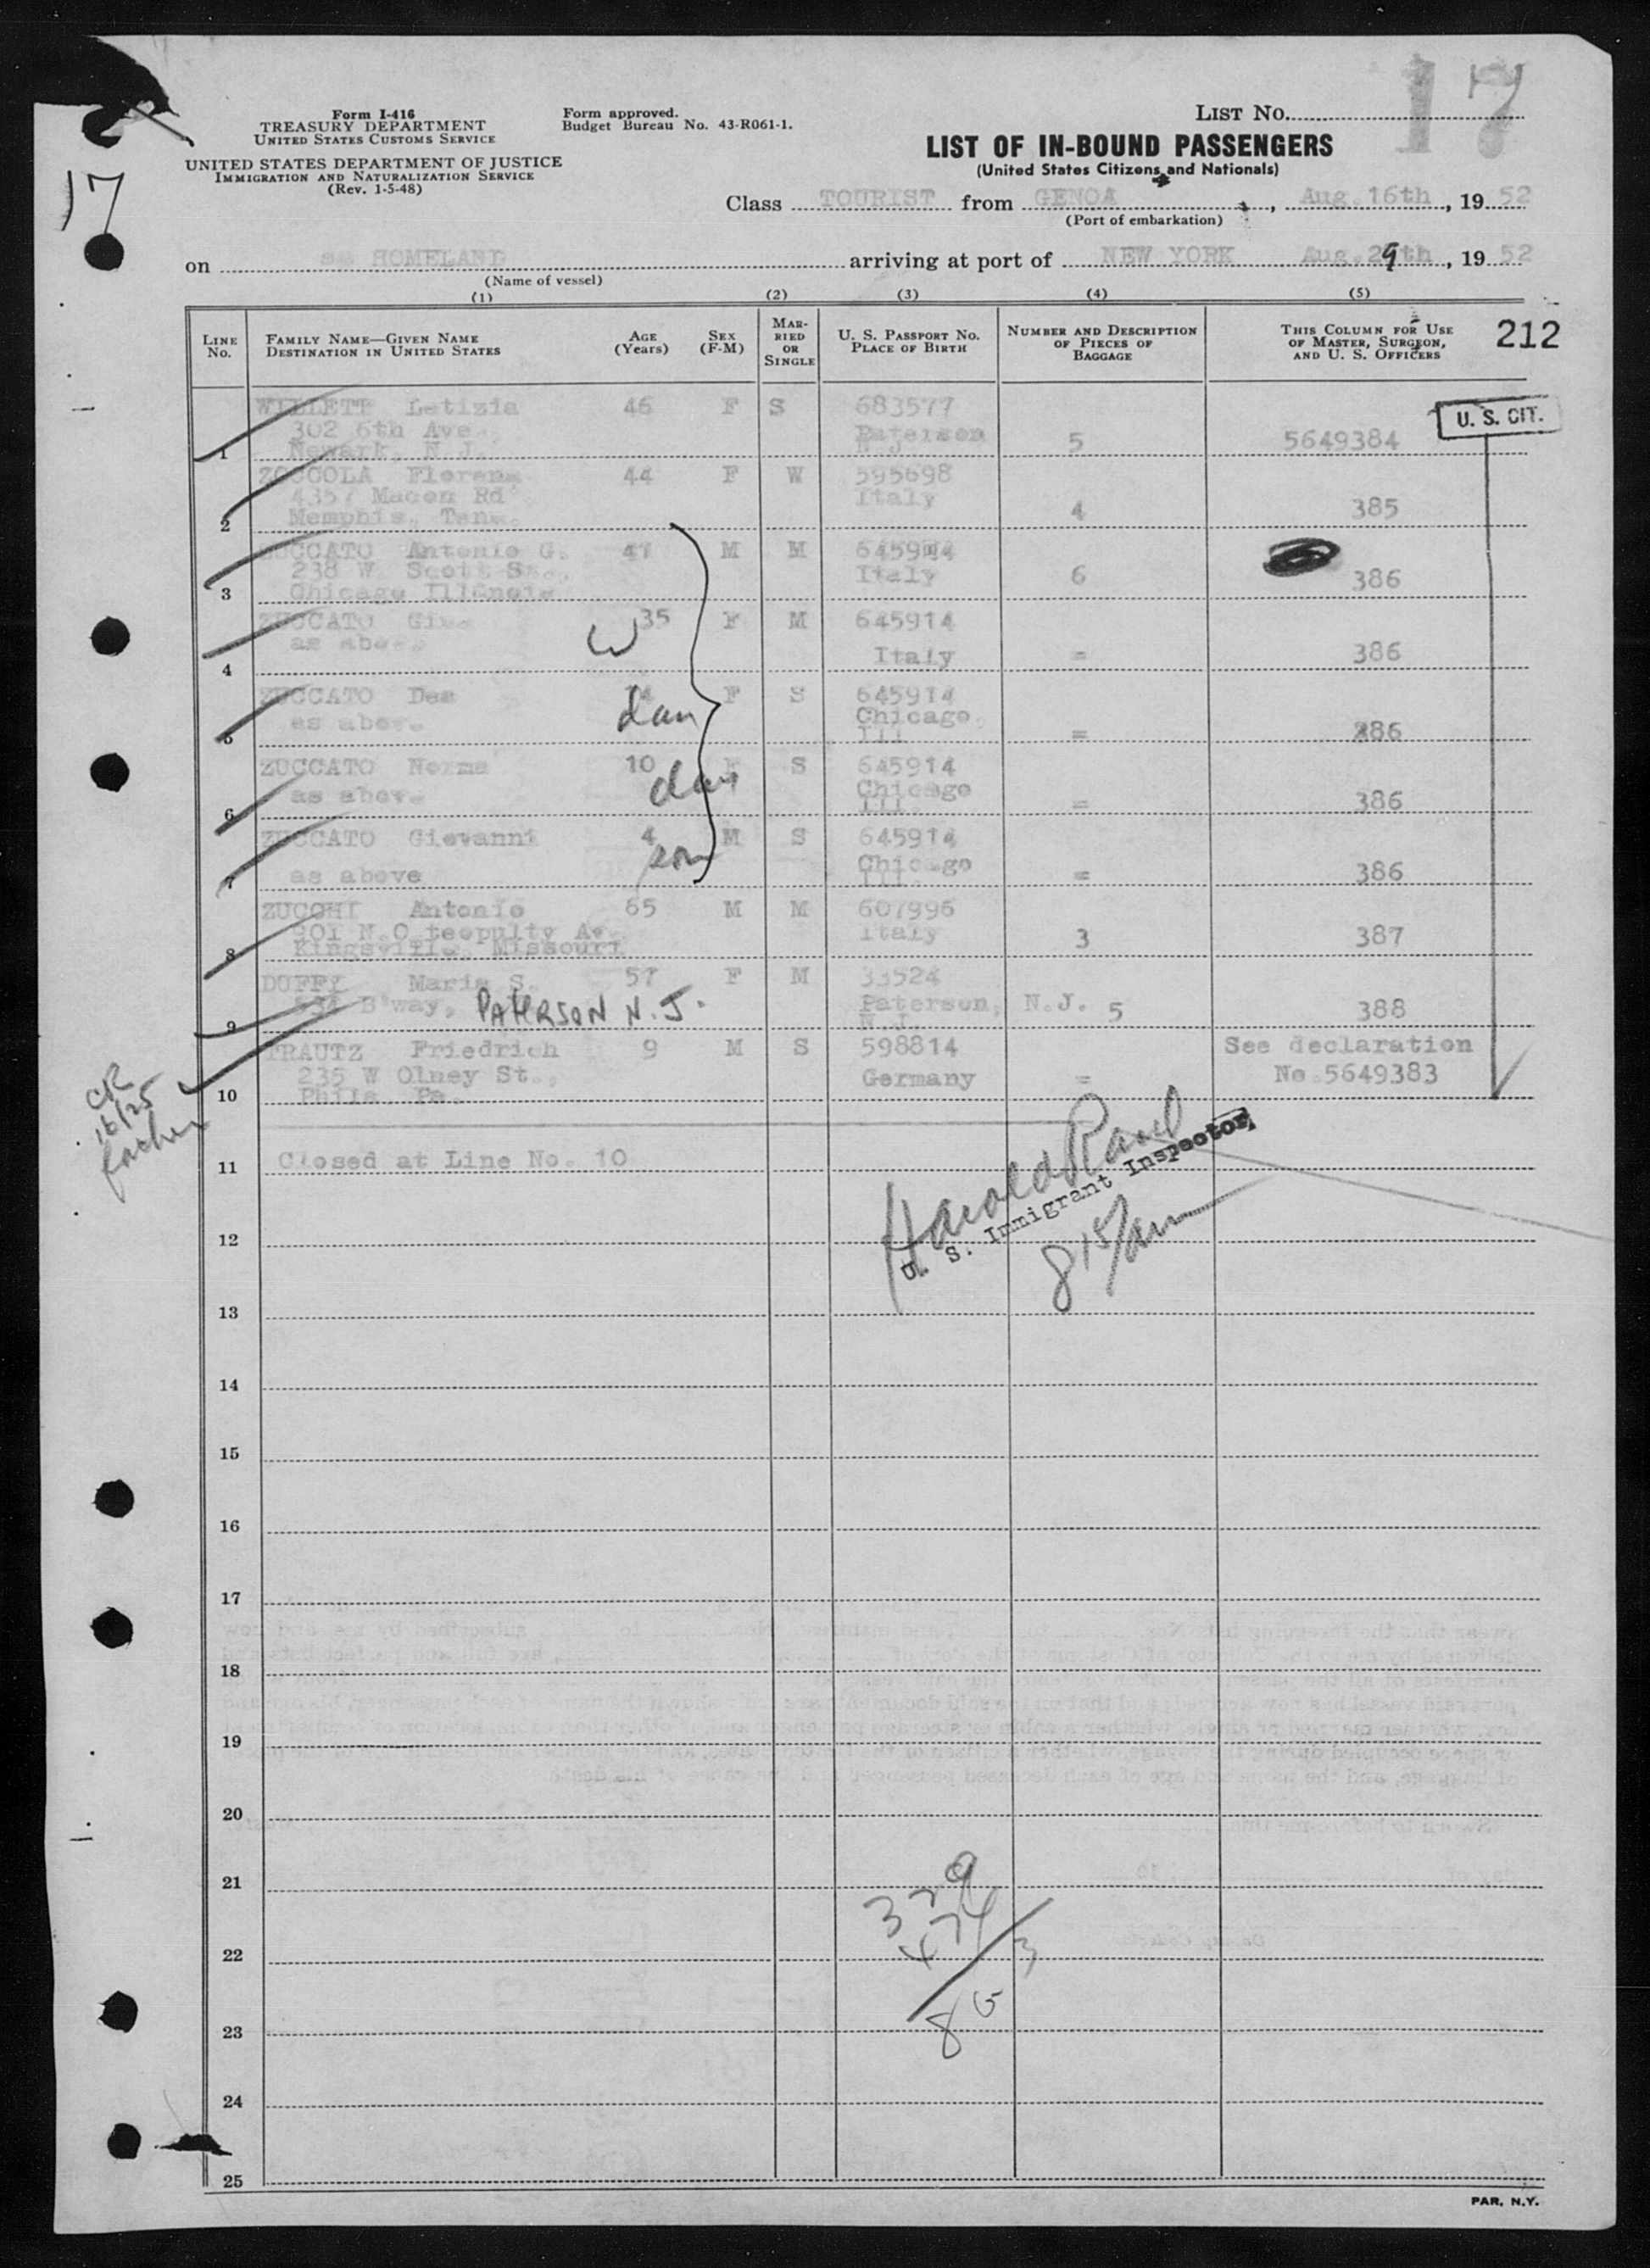 17
Form I-416
TREASURY DEPARTMENT
UNITED STATES CUSTOMS SERVICE
UNITED STATES DEPARTMENT OF JUSTICE
IMMIGRATION AND NATURALIZATION SERVICE
(Rev. 1-5-48)
Form approved.
Budget Bureau No. 43-R061-1.
LIST No. 17
17
LIST OF IN-BOUND PASSENGERS
(United States Citizens and Nationals)
Class TOURIST from GENOA, Aug.16th, 1952
(Port of embarkation)
on ss HOMELAND arriving at port of NEW YORK Aug.29th, 1952
(Name of vessel)
(1) (2) (3) (4) (5)
LINE No. FAMILY NAME—GIVEN NAME DESTINATION IN UNITED STATES AGE (Years) SEX (F-M) MARRIED OR SINGLE U. S. PASSPORT No. PLACE OF BIRTH NUMBER AND DESCRIPTION OF PIECES OF BAGGAGE THIS COLUMN FOR USE OF MASTER, SURGEON, AND U. S. OFFICERS 212
WILLETT Letizia 46 F S 683577 U. S. CIT.
302 6th Ave., Paterson
1 Newark, N.J. N.J. 5 5649384
ZOCCOLA Florena 44 F W 595698
4357 Macon Rd Italy
2 Memphis, Tenn. 4 385
ZUCCATO Antonio G. 47 M M 6459
238 W Scott St., Italy
3 Chicago Illinois 6 386
ZUCCATO Gina 35 F M 645914
as above W Italy
4 = 386
ZUCCATO Dea F S 645914
as above dau Chicago,
5 Ill = 386
ZUCCATO Norma 10 F S 645914
as above dau Chicago
6 Ill. = 386
ZUCCATO Giovanni 4 M S 645914
as above son Chicago
7 Ill. = 386
ZUCCHI Antonio 65 M M 607996
901 N.O Av. Italy
8 Kingsville, Missouri 3 387
DUFFY Marie S. 57 F M 33524
B'way, PATERSON N.J. Paterson, N.J. 5
9 N.J. 388
TRAUTZ Friedrich 9 M S 598814 See declaration
235 W Olney St., Germany = No 5649383
10 Phila. Pa.
11 Closed at Line No. 10
Harold Rand
U. S. Immigrant Inspector
8 15/am
12
13
14
15
16
17
18
19
20
21
22
23
24
25
329
474
803
PAR, N.Y.